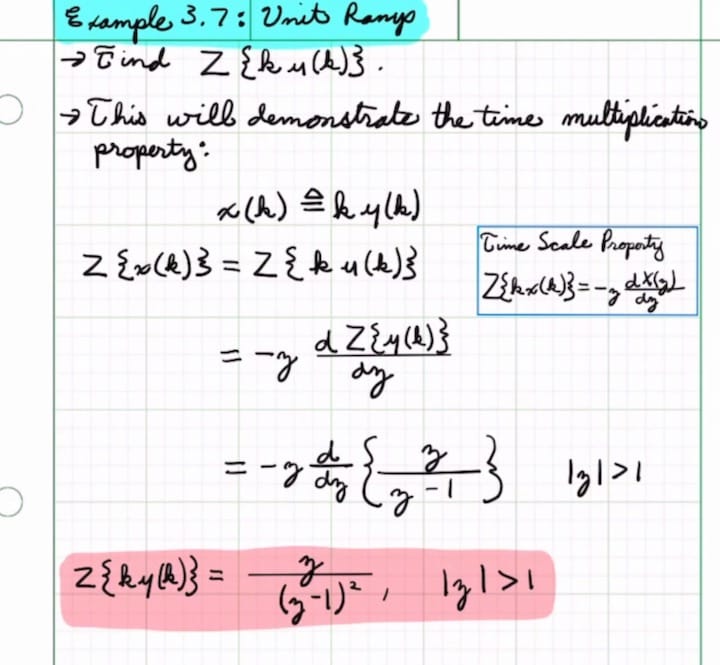 Example 3.7: Unit Ramp
→ Find Z {k u(k)}.
→ This will demonstrate the time multiplication
property:
x(k) ≜ k u(k)
Z {x(k)} = Z { k u(k)}
Time Scale Property
Z{kx(k)} = -z dX(z)/dz
= -z d Z{u(k)}/dz
= -z d/dz { z/(z - 1) } |z| > 1
Z{k u(k)} = z/(z-1)², |z| > 1